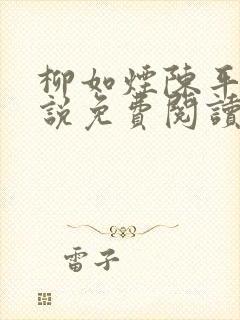 柳如煙陳平
說免費閱讀
雷子